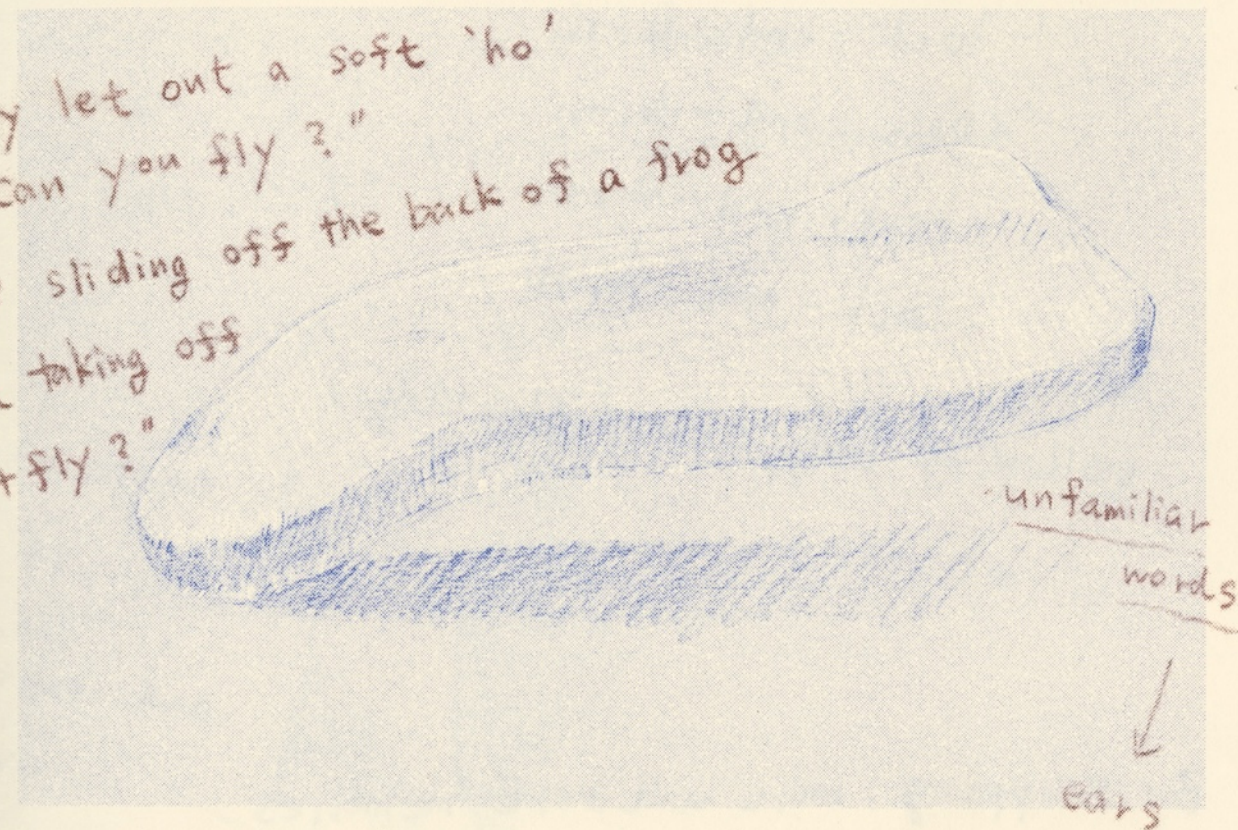 y let out a soft 'ho'
can you fly?"
sliding off the back of a frog
taking off
fly?"
unfamiliar
words
ears